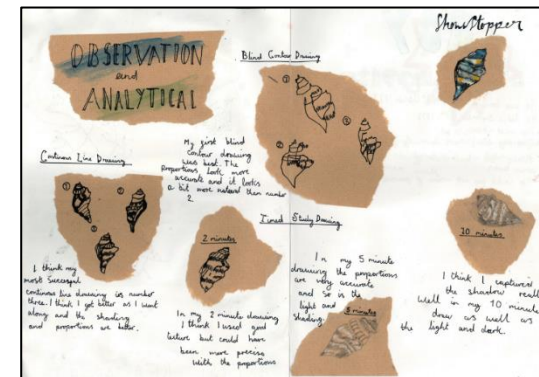 OBSERVATION
and
ANALYTICAL
Show Stopper
Blind Contour Drawing
1
2
3
My first blind
contour drawing
was best. The
proportions look more
accurate and it looks
a bit more natural than number
2.
Continuous Line Drawing
1
2
3
I think my
most successful
continuous line drawing is number
three. I think I got better as I went
along and the shading
and proportions are better.
Timed Study Drawing
2 minutes
In my 2 minute drawing
I think I used good
but could have
been more precise
with the proportions
In my 5 minute
drawing the proportions
are very accurate
and so is the
light and
shading.
5 minutes
10 minutes
I think I captured
the shadow really
well in my 10 minute
draw as well as
the light and dark.